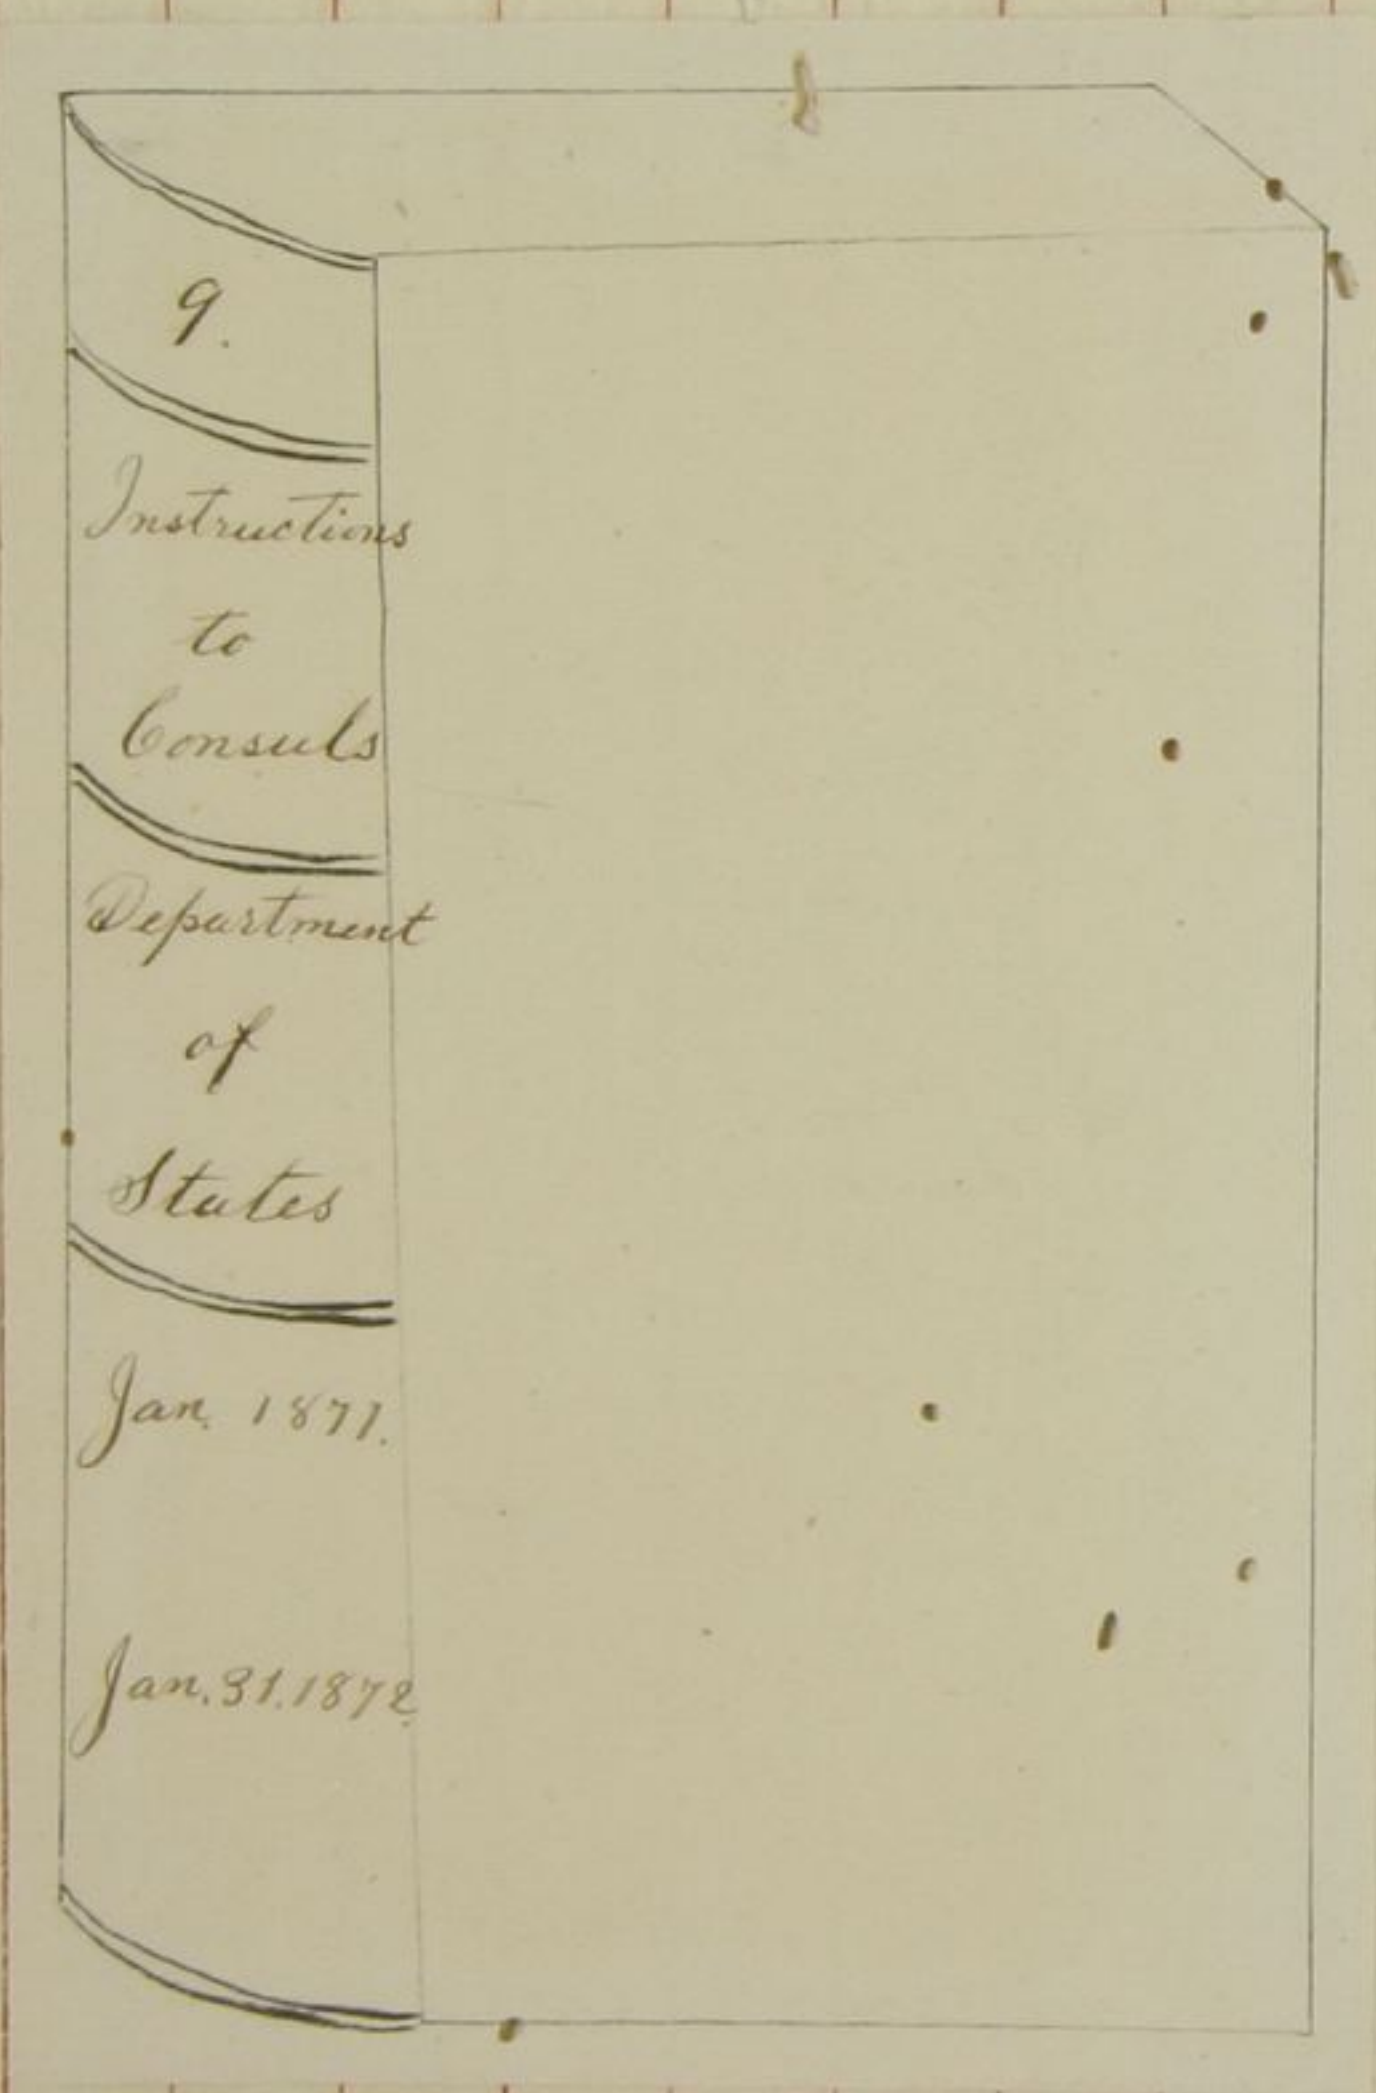 9.
Instructions
to
Consuls
Department
of
States
Jan. 1871.
Jan. 31. 1872.